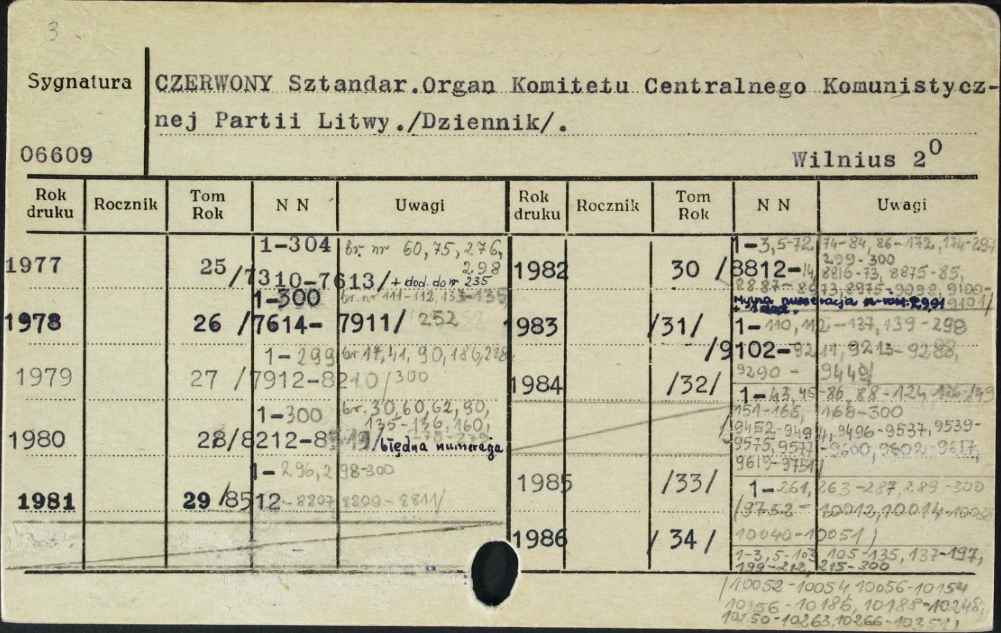 3
Sygnatura
CZERWONY Sztandar.Organ Komitetu Centralnego Komunistycz-
nej Partii Litwy./Dziennik/.
06609
Wilnius 2⁰
Rok druku Rocznik Tom Rok N N Uwagi
1977 25 1-304 br. nr 60, 75, 276, 298
/7310-7613/ + dod. do nr 235
1978 26 1-300 br. nr 111-112, 133-135
/7614-7911/ 252
1979 27 1-299 br 17, 41, 90, 186,
/7912-8210/300
1980 28 1-300 br. 30, 60, 62, 90, 135-136, 160,
/8212- błędna numeracja
1981 29 1-296, 298-300
/8512-8807 8809-8811/
Rok druku Rocznik Tom Rok N N Uwagi
1982 30 1-3, 5-72, 74-84, 86-172, 174-297
299-300
/8812-14, 8816-73, 8875-85,
8887-8973, 8975-9098, 9100-
9101/
1983 /31/ 1-110, 112-137, 139-298
/9102-9211, 9213-9288,
9290-9449/
1984 /32/ 1-43, 45-86, 88-124, 126-149
151-166, 168-300
/9452-9494, 9496-9537, 9539-
9575, 9577-9600, 9602-9617,
9619-9751/
1985 /33/ 1-261, 263-287, 289-300
/9752-10012, 10014-10038
10040-10051/
1986 /34/ 1-3, 5-103, 105-135, 137-197,
199-212, 215-300
/10052-10054 10056-10154
10156-10186, 10188-10248,
10250-10263, 10266-